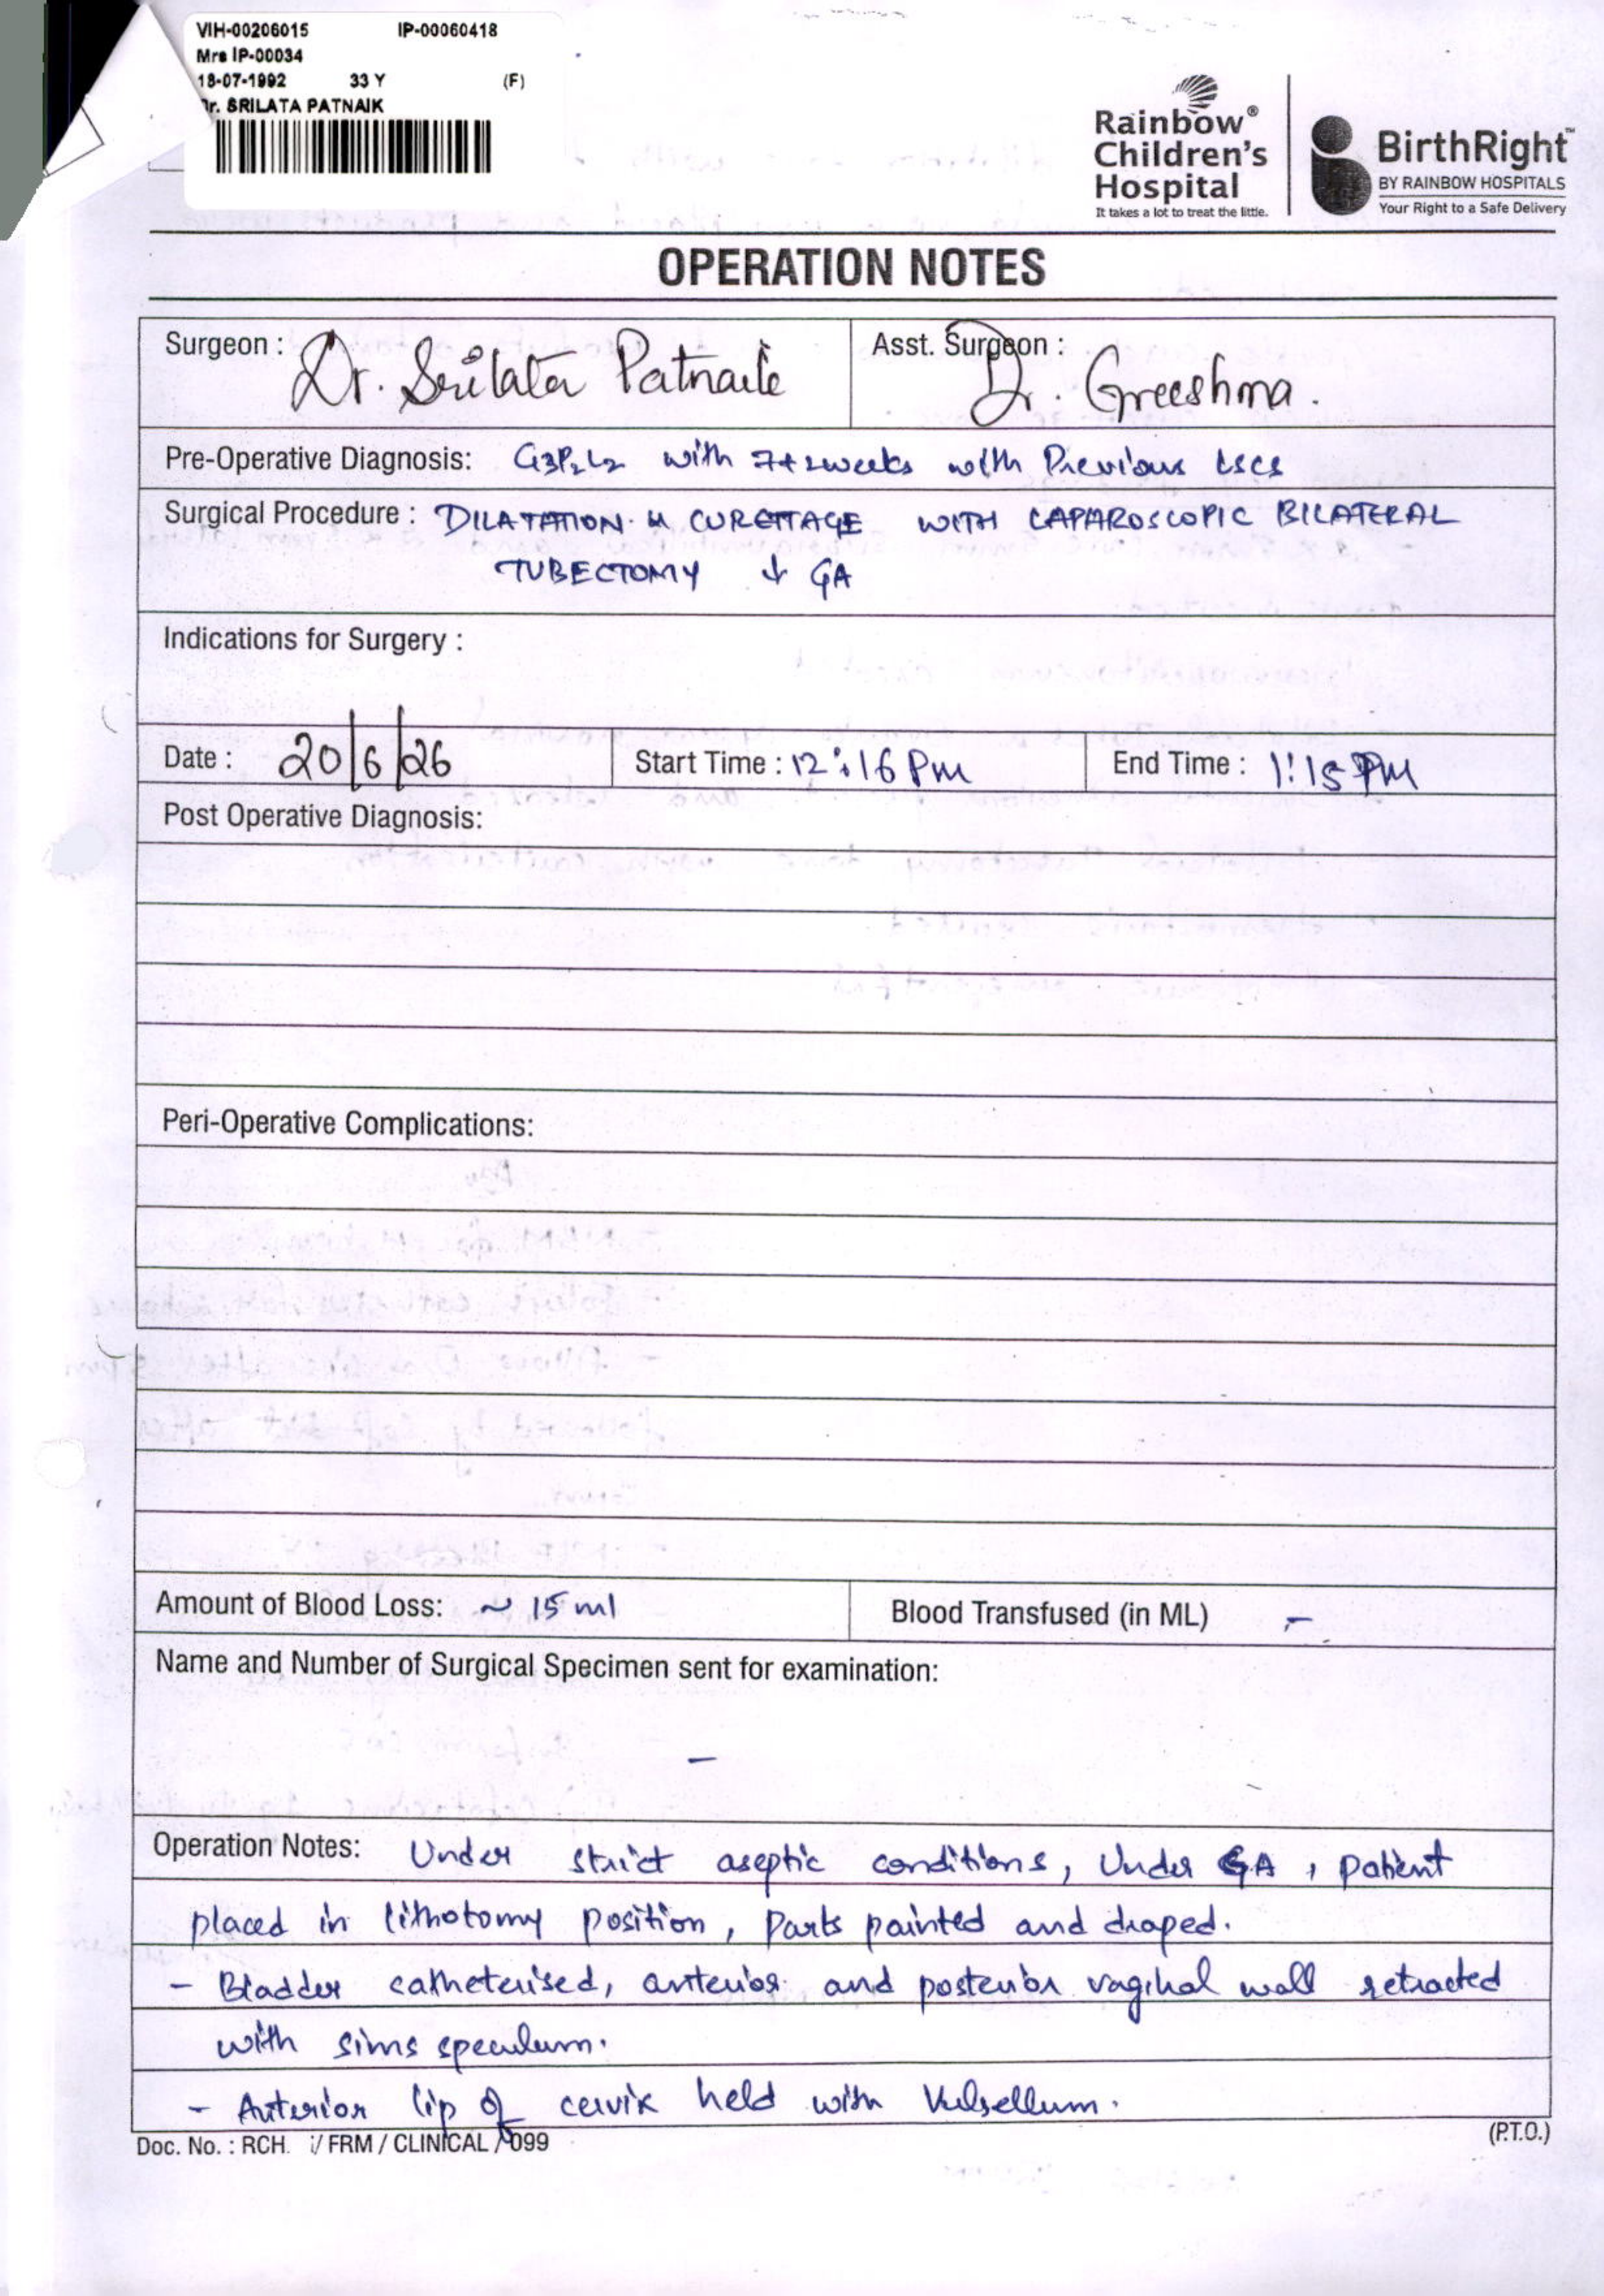 VIH-00206015 IP-00060418
Mrs IP-00034
18-07-1992 33 Y (F)
Dr. SRILATA PATNAIK
Rainbow®
Children's
Hospital
It takes a lot to treat the little.
BirthRight™
BY RAINBOW HOSPITALS
Your Right to a Safe Delivery
OPERATION NOTES
Surgeon : Dr. Srilata Patnaik Asst. Surgeon : Dr. Greeshma.
Pre-Operative Diagnosis: G3P2L2 with 7+2weeks with Previous LSCS
Surgical Procedure : DILATATION & CURETTAGE WITH LAPAROSCOPIC BILATERAL
TUBECTOMY ↓ GA
Indications for Surgery :
Date : 20/6/26 Start Time : 12:16 Pm End Time : 1:15 PM
Post Operative Diagnosis:
Peri-Operative Complications:
Amount of Blood Loss: ~ 15 ml Blood Transfused (in ML) -
Name and Number of Surgical Specimen sent for examination:
-
Operation Notes: Under strict aseptic conditions, Under GA, patient
placed in lithotomy position, parts painted and draped.
- Bladder catheterised, anterior and posterior vaginal wall retracted
with sims speculum.
- Anterior lip of cervix held with Vulsellum.
Doc. No. : RCH / FRM / CLINICAL / 099 (P.T.O.)